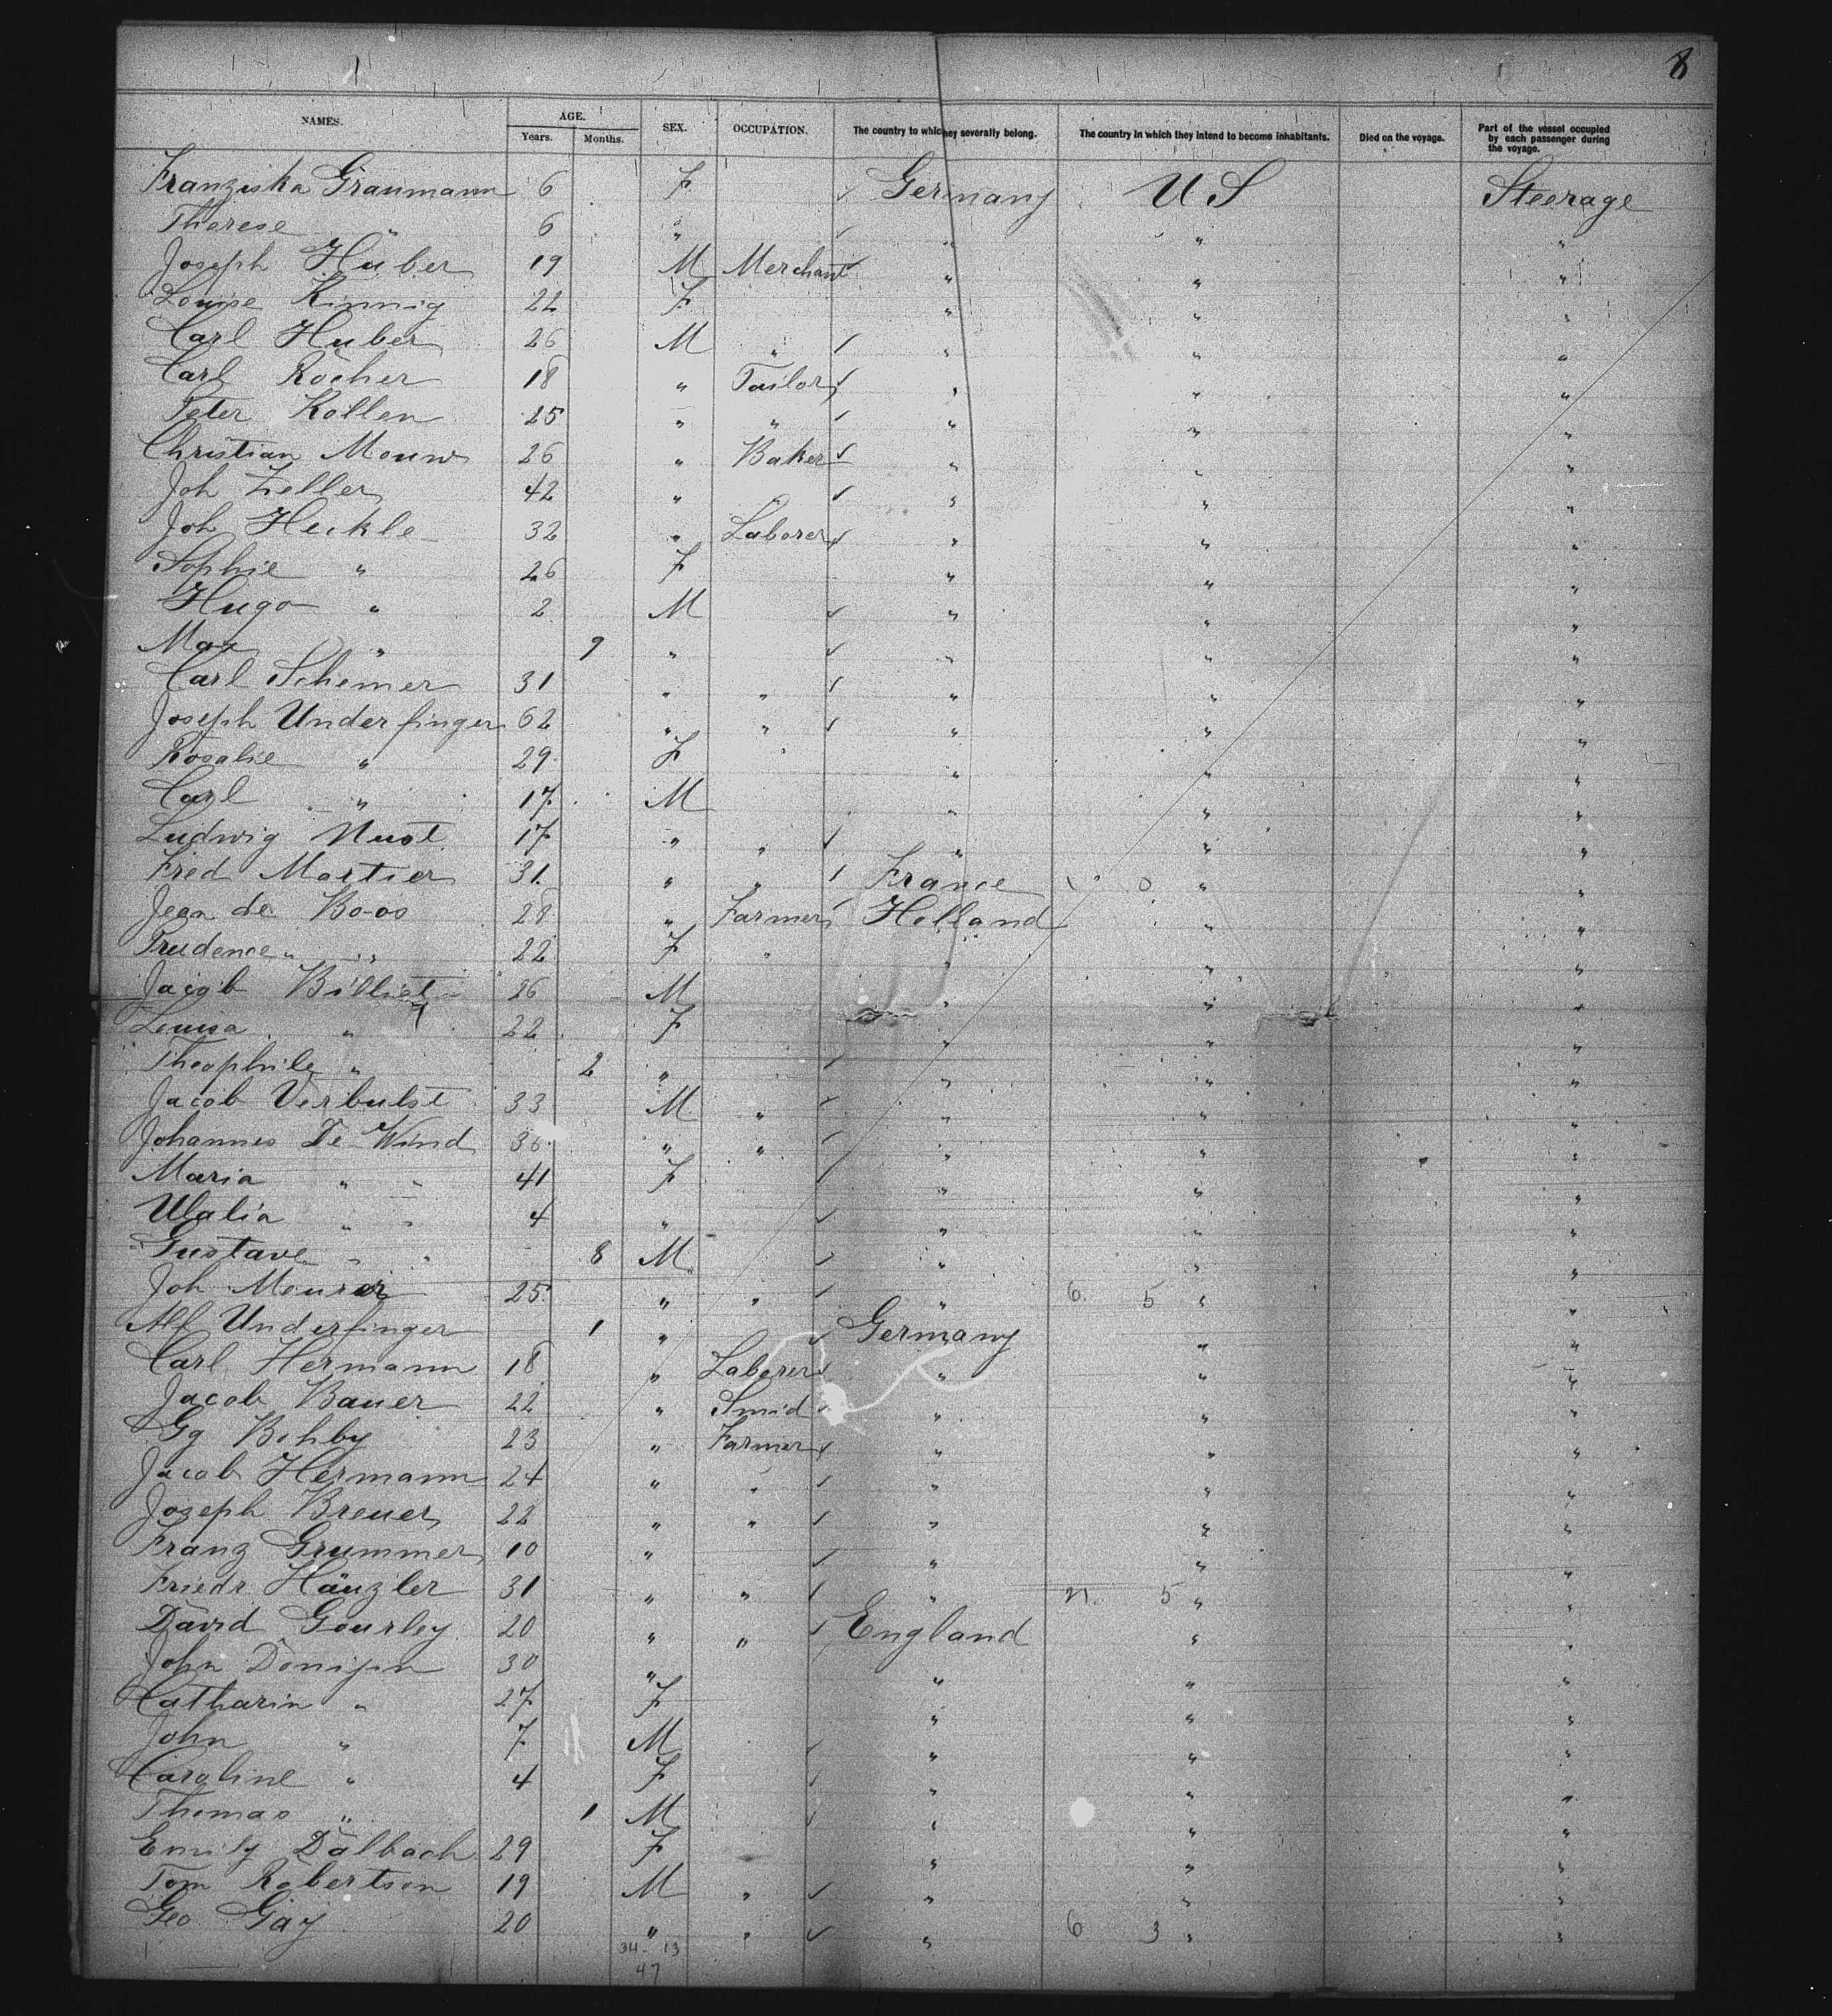 8
NAMES. AGE. Years. Months. SEX. OCCUPATION. The country to which they severally belong. The country in which they intend to become inhabitants. Died on the voyage. Part of the vessel occupied by each passenger during the voyage.
Franziska Graumann 6 F Germany U S Steerage
Therese " 6 " " " "
Joseph Huber 19 M Merchant " " "
Louise Kinnig 22 F " " "
Carl Huber 26 M " " " "
Carl Rocher 18 " Tailor " " "
Peter Kollen 25 " " " " "
Christian Mouw 26 " Baker " " "
Joh Zeller 42 " " " "
Joh Heckle 32 " Laborer " " "
Sophie " 26 F " " "
Hugo " 2 M " " "
Max " 9 " " " "
Carl Schemer 31 " " " " "
Joseph Underfinger 62 " " " " "
Rosalie " 29 F " " "
Carl " 17 M " " "
Ludwig Nust 17 " " " " "
Fred Martier 31 " " France 0 " "
Jean de Boos 28 " Farmer Holland " "
Prudence " " 22 F " " " "
Jacob Billiet 26 M " " "
Louisa " 22 F " " "
Theophile " 2 " " " "
Jacob Verbulst 33 M " " " "
Johannes De Wind 36 " " " " "
Maria " " 41 F " " "
Ulalia " " 4 " " " "
Gustave " " 8 M " " "
Joh Mourer 25 " " " 6 5 " "
Alf Underfinger 1 " Germany " "
Carl Hermann 18 " Laborer " " "
Jacob Bauer 22 " Smid " " "
Gg Bohby 23 " Farmer " " "
Jacob Hermann 24 " " " " "
Joseph Breuer 22 " " " " "
Franz Grummer 10 " " " "
Friedr Hänzler 31 " " " 21 5 " "
David Gourley 20 " " England " "
John Donigan 30 " " " "
Catharin " 27 F " " "
John " 7 M " " "
Caroline " 4 F " " "
Thomas " 1 M " " "
Emily Dalbach 29 F " " "
Tom Robertson 19 M " " " "
Geo Gay 20 " " " 6 3 " "
34 13
47